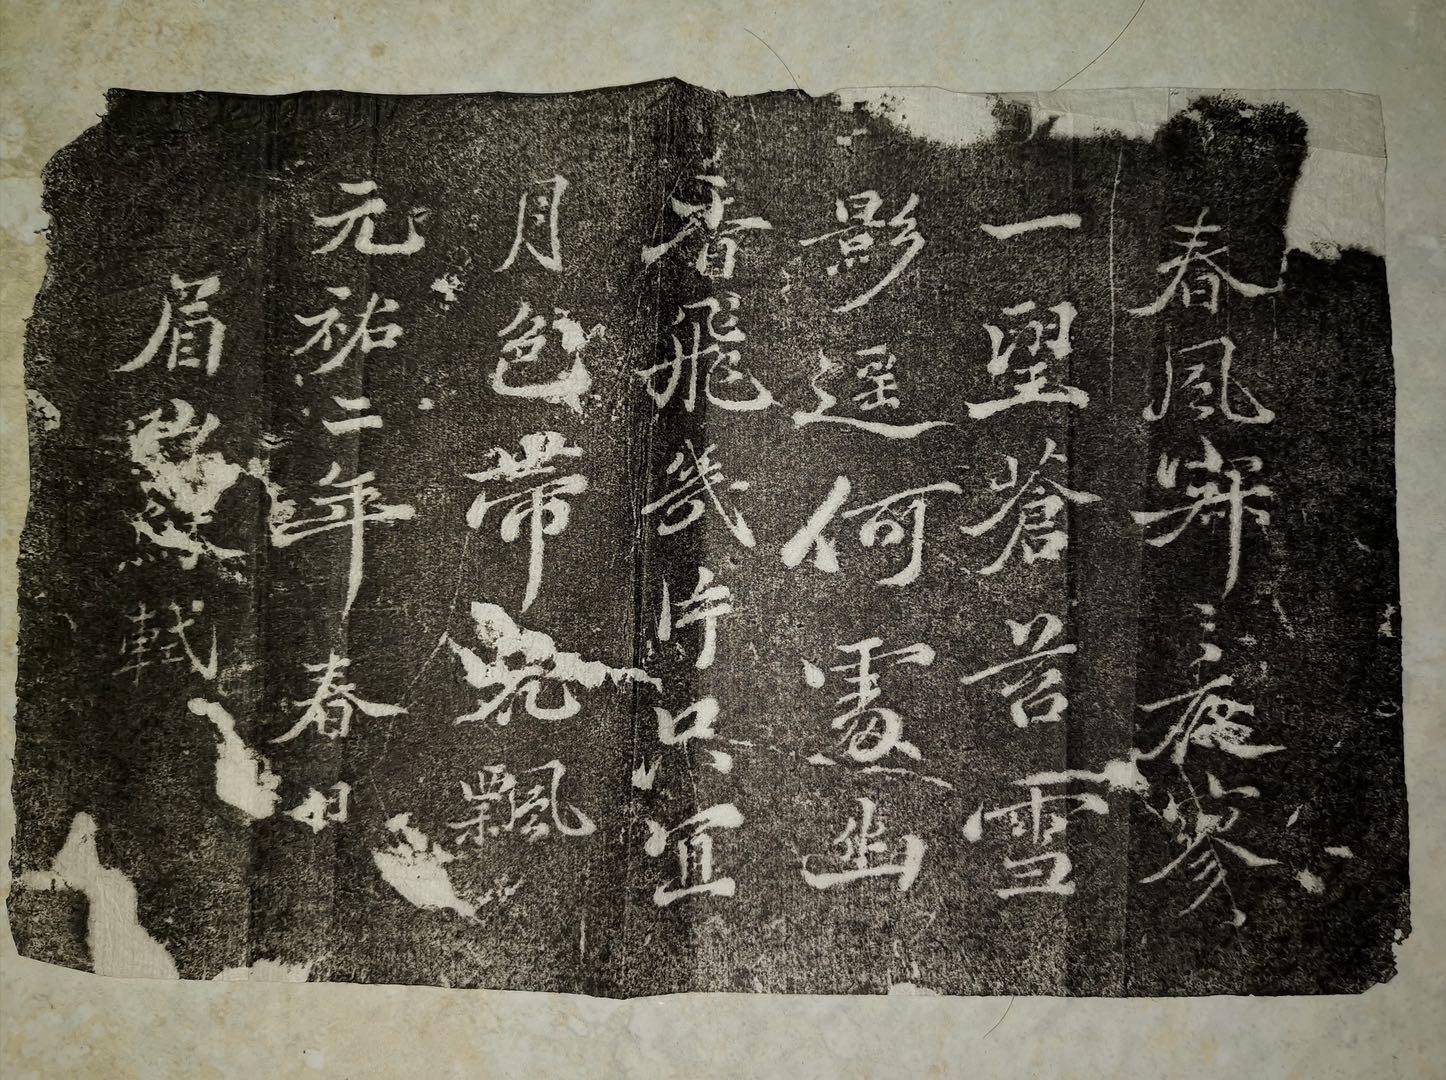 春風寂〻夜寥
一望蒼苔雪
影遥何處幽
香飛幾片只宜
月色帶光飄
元祐二年春日
眉山蘇軾